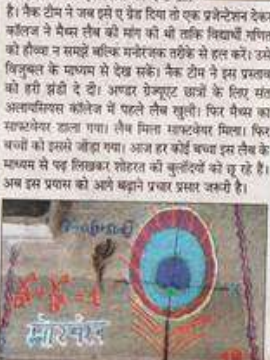 है। नैक टीम ने जब इसे ए ग्रेड दिया तो एक प्रजेन्टेशन देकर
कॉलेज ने मैथ्स लैब की मांग की थी ताकि विद्यार्थी गणित
को हौव्वा न समझें बल्कि मनोरंजक तरीके से हल करें। उसे
विजुबल के माध्यम से देख सकें। नैक टीम ने इस प्रस्ताव
को हरी झंडी दे दी। अण्डर ग्रेज्युएट छात्रों के लिए संत
अलायसियस कॉलेज में पहले लैब खुली। फिर मैथ्स का
साफ्टवेयर डाला गया। लैब मिला साफ्टवेयर मिला। फिर
बच्चों को इससे जोड़ा गया। आज हर कोई बच्चा इस लैब के
माध्यम से पढ़ लिखकर शोहरत की बुलंदियों को छू रहे हैं।
अब इस प्रयास को आगे बढ़ाने प्रचार प्रसार जरूरी है।